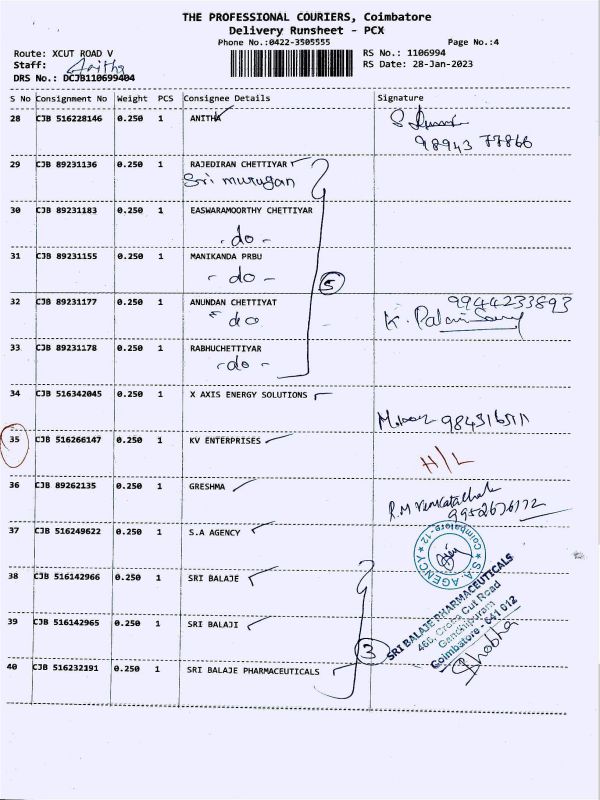 THE PROFESSIONAL COURIERS, Coimbatore
Delivery Runsheet - PCX
Phone No.:0422-3505555
Page No.:4
Route: XCUT ROAD V
RS No.: 1106994
Staff: Anitha
RS Date: 28-Jan-2023
DRS No.: DCJB110699404
S No Consignment No Weight PCS Consignee Details Signature
28 CJB 516228146 0.250 1 ANITHA
98943 77866
29 CJB 89231136 0.250 1 RAJEDIRAN CHETTIYAR
Sri murugan
30 CJB 89231183 0.250 1 EASWARAMOORTHY CHETTIYAR
- do -
31 CJB 89231155 0.250 1 MANIKANDA PRBU
- do -
5
32 CJB 89231177 0.250 1 ANUNDAN CHETTIYAT 9944233893
- do K. Palani Samy
33 CJB 89231178 0.250 1 RABHUCHETTIYAR
- do -
34 CJB 516342045 0.250 1 X AXIS ENERGY SOLUTIONS
35 CJB 516266147 0.250 1 KV ENTERPRISES
H/L
36 CJB 89262135 0.250 1 GRESHMA
R.M Venkatachala
9952676172
37 CJB 516249622 0.250 1 S.A AGENCY
S.A. AGENCY Coimbatore-12
38 CJB 516142966 0.250 1 SRI BALAJE
39 CJB 516142965 0.250 1 SRI BALAJI
3
SRI BALAJE PHARMACEUTICALS
466, Cross Cut Road
Gandhipuram
Coimbatore - 641 012
Shobha
40 CJB 516232191 0.250 1 SRI BALAJE PHARMACEUTICALS